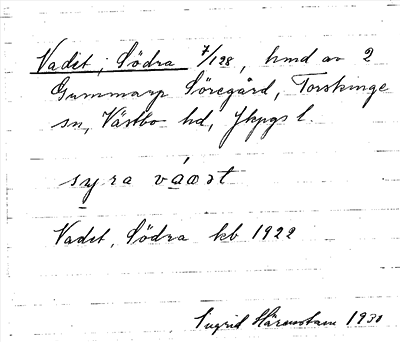 Vadet, Södra 7/128, hmd av 2
Gummarp Söregård, Torskinge
sn, Västbo hd, Jkpgs l.
Vadet, Södra kb 1922
Ingrid 1930